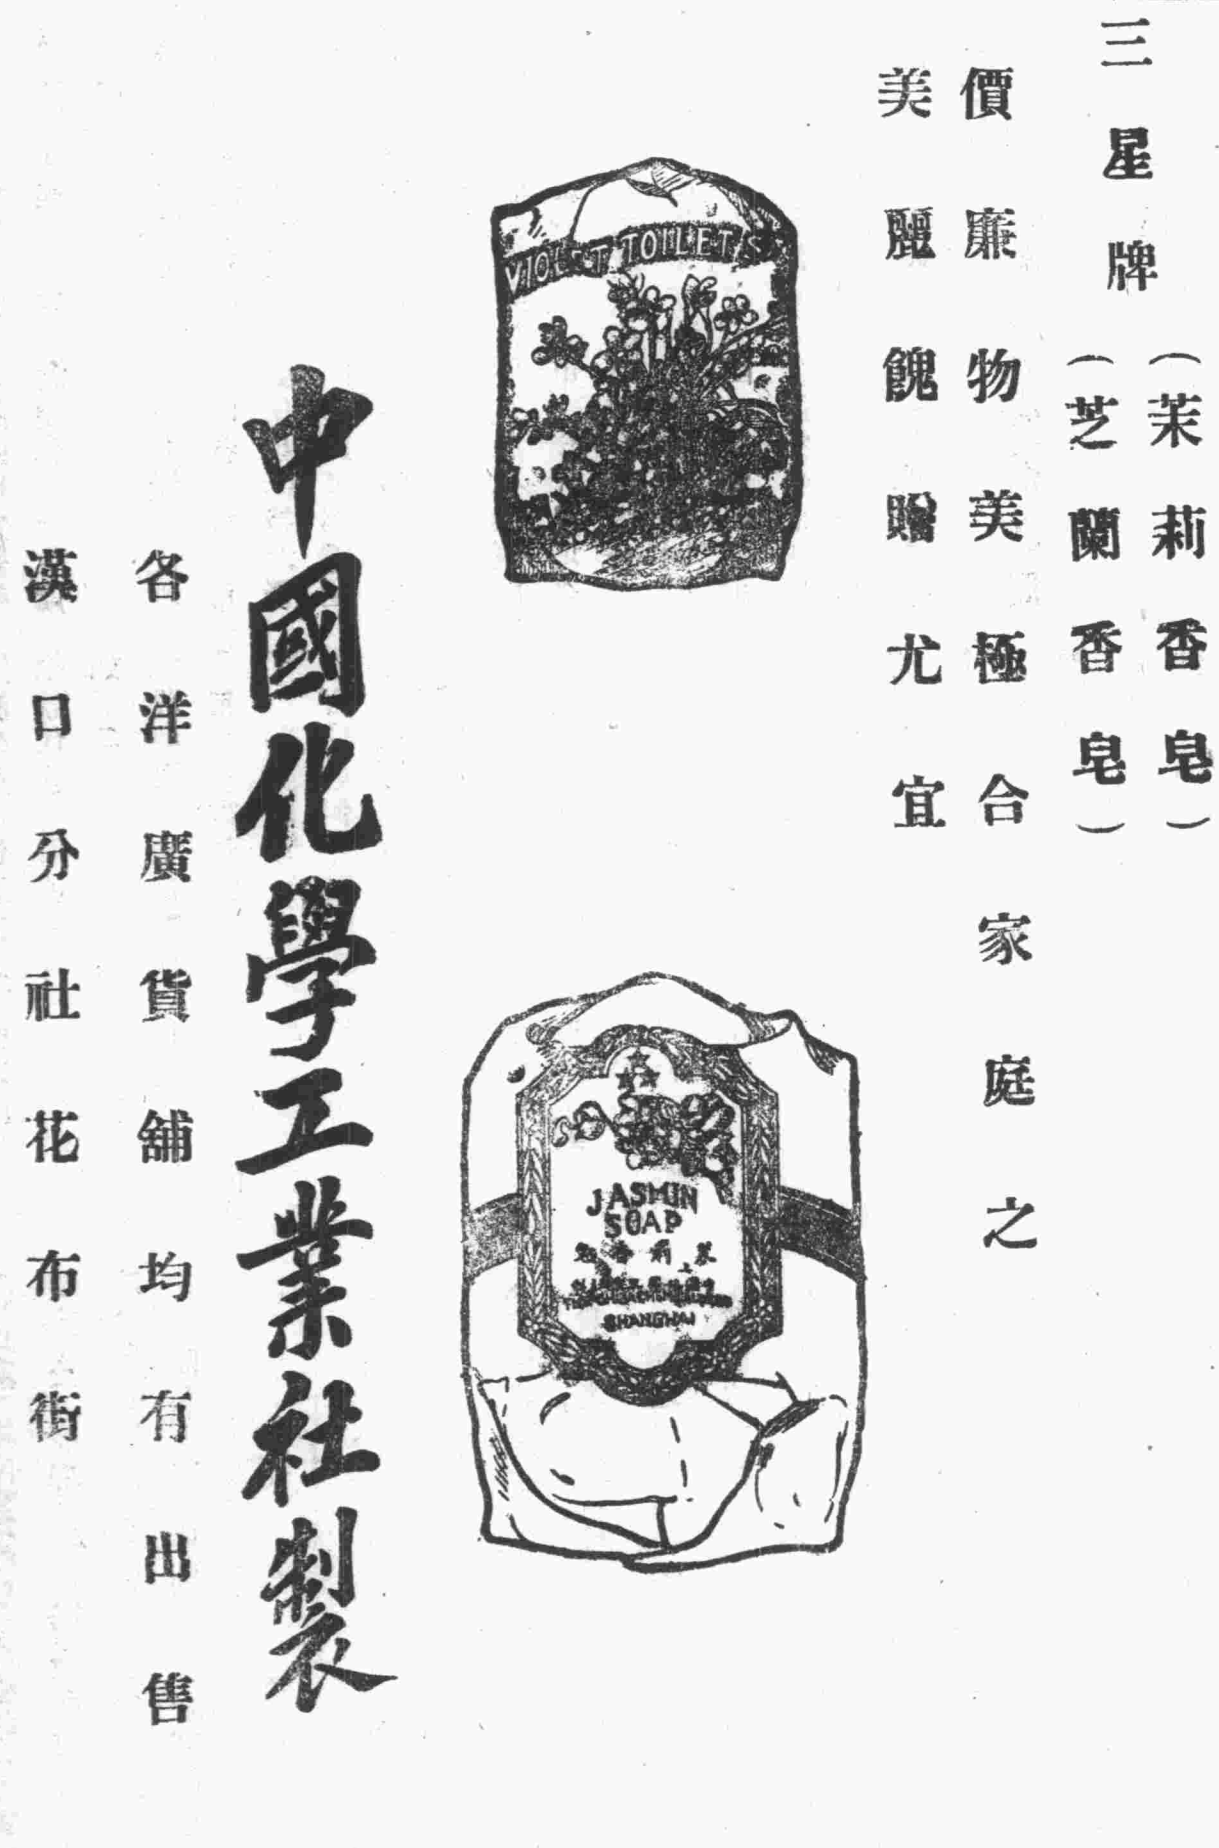 三星牌
（茉莉香皂）
（芝蘭香皂）
價廉物美極合家庭之
美麗餽贈尤宜
VIOLET TOILET S
JASMIN
SOAP
SHANGHAI
中國化學工業社製
各洋廣貨舖均有出售
漢口分社花布街